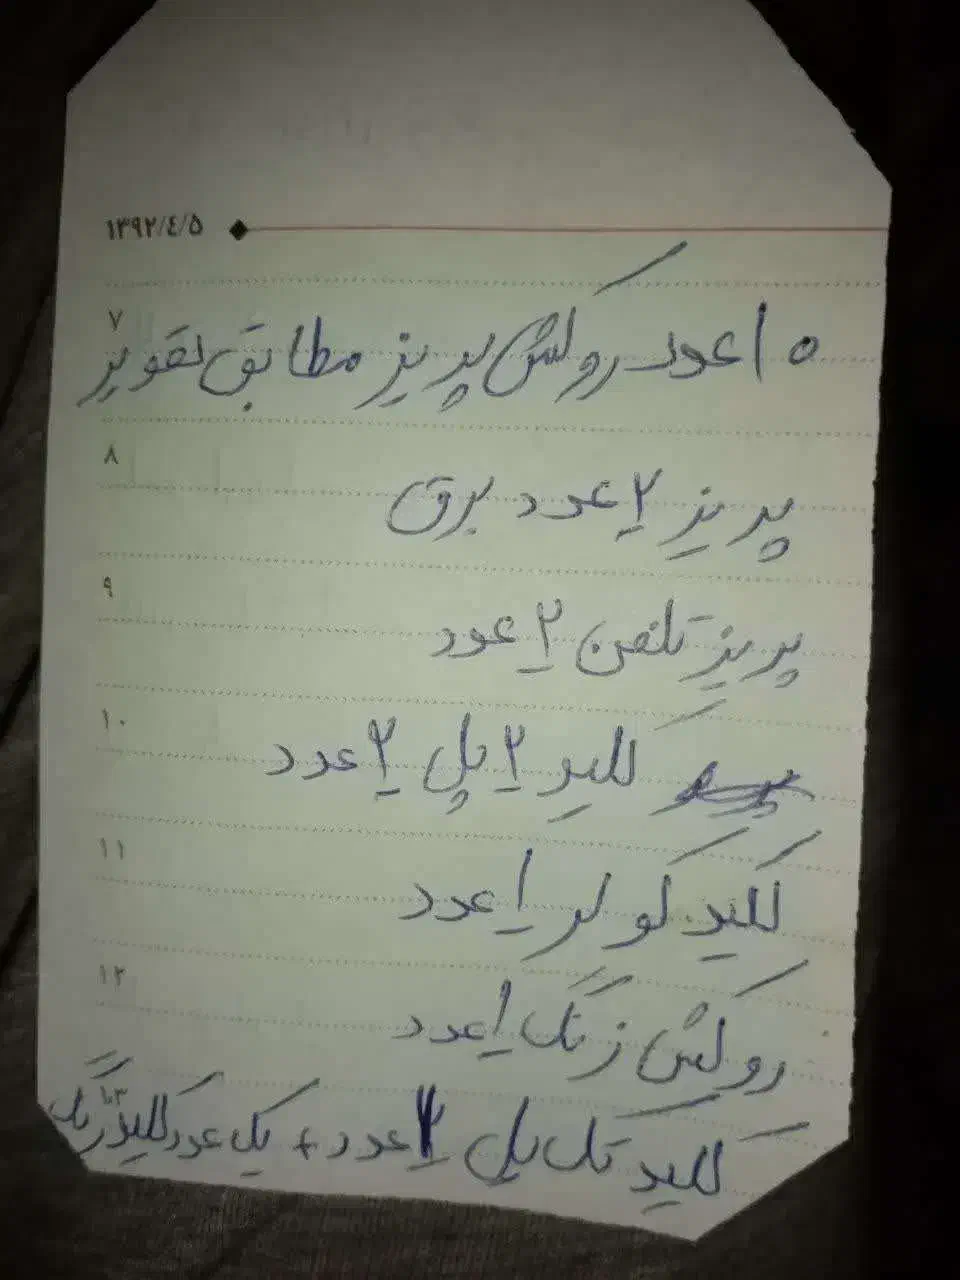 ۱۳۹۲/٤/۵
۷
۱۵ عدد روکش پریز مطابق تصویر
۸
پریز ۲ عدد برق
۹
پریز تلفن ۲ عدد
۱۰
کلید ۲ پل ۲ عدد
۱۱
کلید کولر ۱ عدد
۱۲
روکش زنگ ۱ عدد
۱۳
کلید تک پل ۲ عدد + یک عدد کلید زنگ